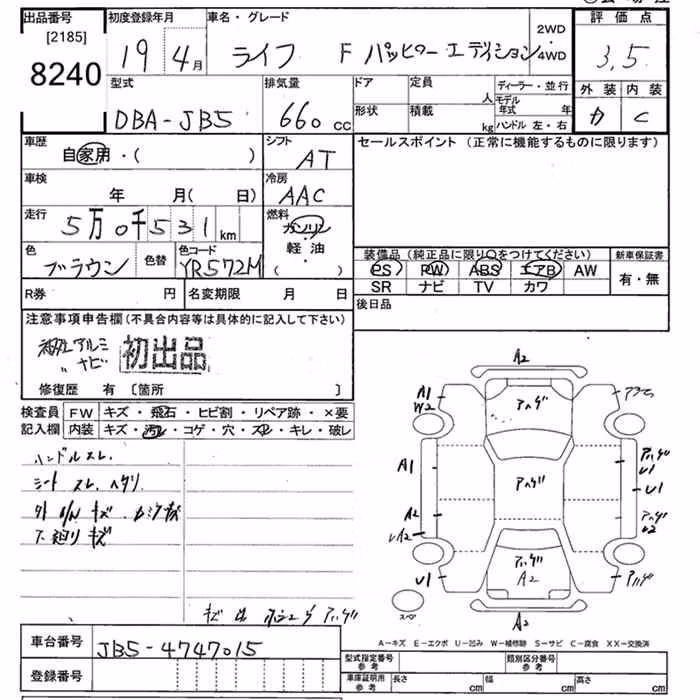 出品番号
[2185]
8240
初度登録年月
19 4月
車名・グレード
ライフ F
2WD
4WD
評価点
3,5
型式
DBA-JB5
排気量
660 cc
ドア
定員
人
ディーラー・並行
形状
積載
kg
モデル年式 年
ハンドル 左・右
外装 内装
C
車歴
自家用・( )
シフト
AT
セールスポイント (正常に機能するものに限ります)
車検
年 月( 日)
冷房
AAC
走行
5万0千531km
燃料
ガソリン
軽油
( ・ )
色
ブラウン
色替
色コード
YR572M
装備品(純正品に限り○をつけてください)
PS PW ABS エアB AW
SR ナビ TV カワ
新車保証書
有・無
R券 円
名変期限 月 日
後日品
注意事項申告欄(不具合内容等は具体的に記入して下さい)
社外アルミ
〃 ナビ
初出品
修復歴 有 〔箇所 〕
検査員
記入欄
FW キズ・飛石・ヒビ割・リペア跡・×要
内装 キズ・汚レ・コゲ・穴・スレ・キレ・破レ
ハンドルスレ、
シートスレ、ヘタリ
下廻りキズ
A2
A1
W2
A1
A2
U1
U1
U1
U2
A2
スペア
A2
A-キズ E-エクボ U-凹み W-補修跡 S-サビ C-腐食 XX-交換済
車台番号
JB5-4747015
登録番号
型式指定番号
参考
類別区分番号
参考
車庫証明用
参考
長さ cm
幅 cm
高さ cm